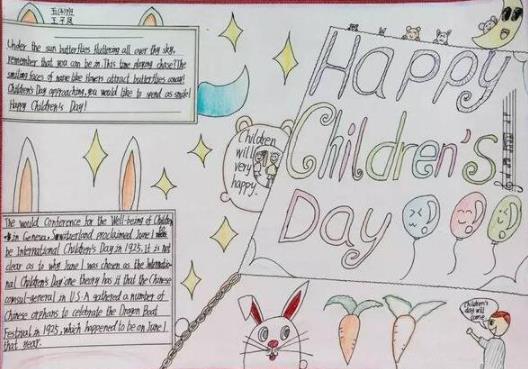 Under the sun butterflies fluttering all over the sky,
remember that you can be in This time playing chase! The
smiling faces of name like flowers attract butterflies away!
Children's Day approaching, you would like to send as smile!
Happy Children's Day!
Children
will
very
happy.
Happy
Children's
Day
The would Conference for the Well-being of Children
in Geneva, Switzerland proclaimed June 1 to
be International Children's Day in 1925. It is not
clear as to why June 1 was chosen as the Internatio-
nal Children's Day one theory has it that the Chinese
consul-general in U.S.A gathered a number of
Chinese orphans to celebrate the Dragon Boat
Festival in 1925, which happened to be on June 1
that year.
Children's
day will
come